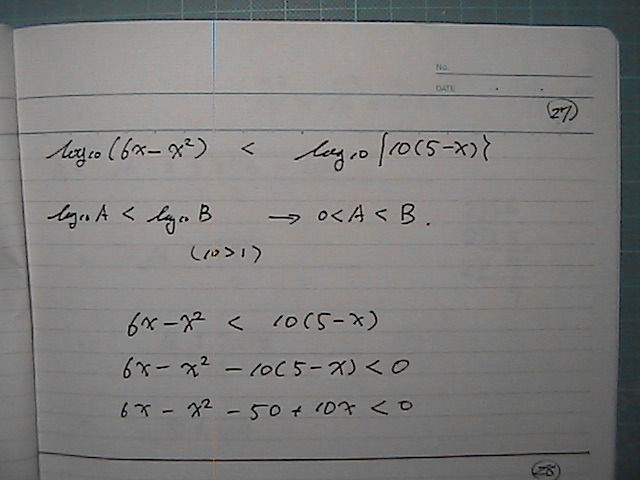 No.
DATE
(27)
log₁₀(6x-x²) < log₁₀{10(5-x)}
log₁₀A < log₁₀B → 0<A<B.
(10>1)
6x-x² < 10(5-x)
6x-x²-10(5-x)<0
6x-x²-50+10x<0
(28)